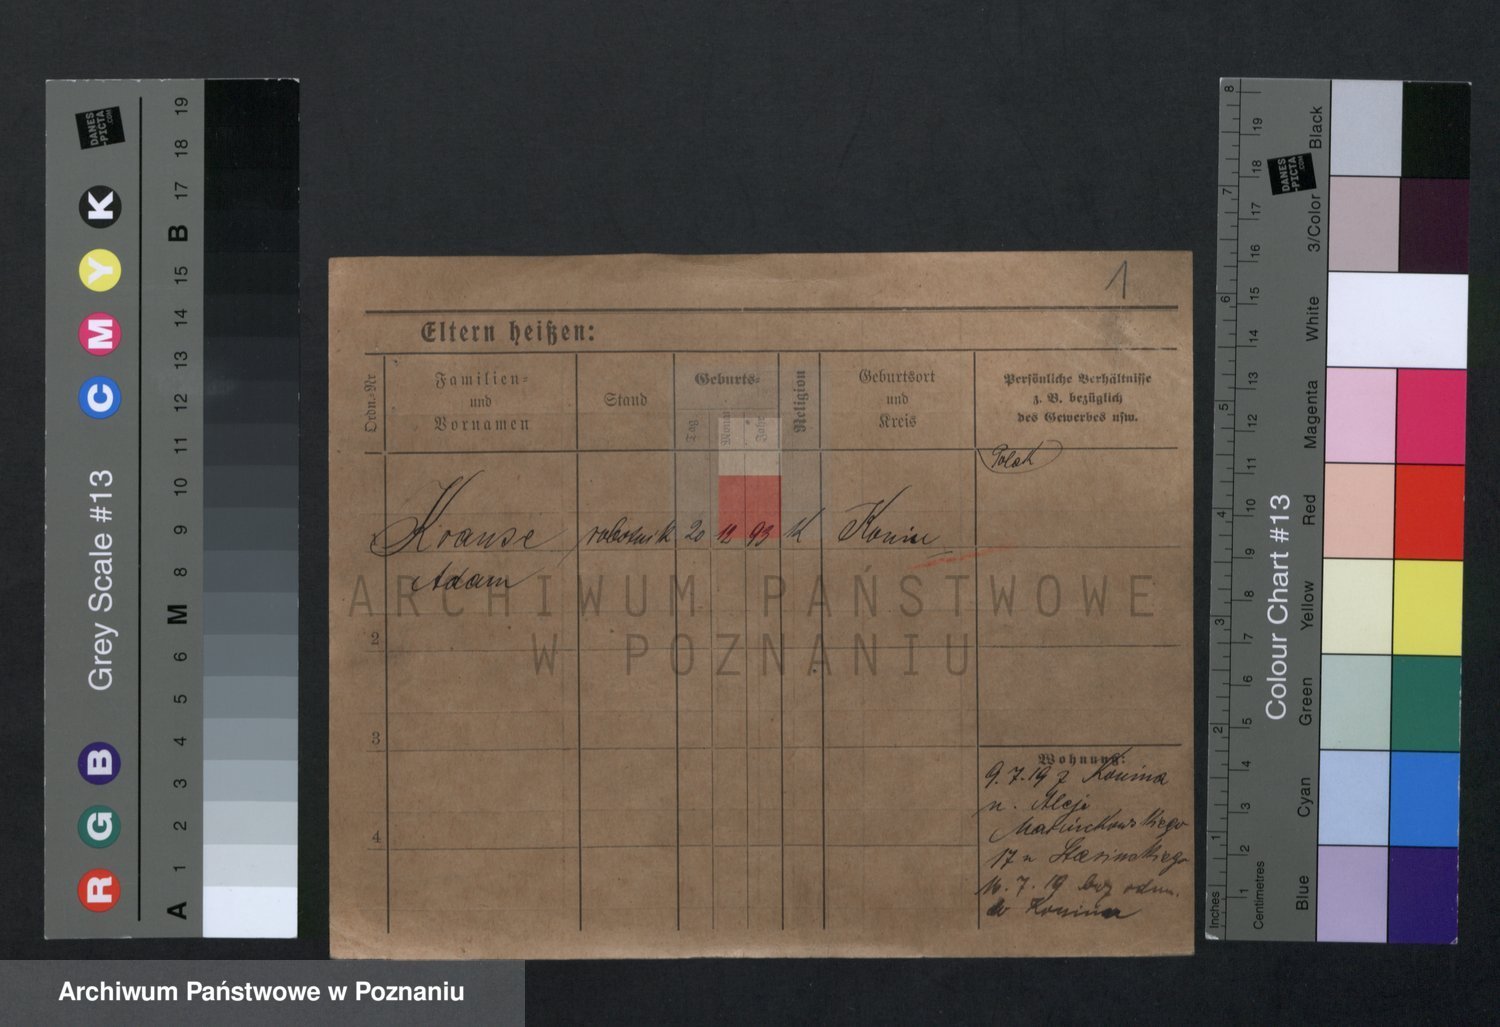 1
Eltern heißen:
Ordn.-Nr
Familien-
und
Vornamen
Stand
Geburts-
Tag
Monat
Jahr
Religion
Geburtsort
und
Kreis
Persönliche Verhältnisse
z. B. bezüglich
des Gewerbes usw.
Polak
Krause robotnik 20 12 93 k Konin
Adam
2
3
4
Wohnung:
9.7.19 z Konina
n. Aleje
Marcinkowskiego
17 u Stasinskiego
16.7.19 bez odm.
do Konina
ARCHIWUM PAŃSTWOWE
W POZNANIU
Archiwum Państwowe w Poznaniu
Grey Scale #13
R G B C M Y K
A 1 2 3 4 5 6 M 8 9 10 11 12 13 14 15 B 17 18 19
DANES
-PICTA
.COM
Colour Chart #13
Blue Cyan Green Yellow Red Magenta White 3/Color Black
Inches 1 2 3 4 5 6 7 8
Centimetres 1 2 3 4 5 6 7 8 9 10 11 12 13 14 15 16 17 18 19
DANES
-PICTA
.COM